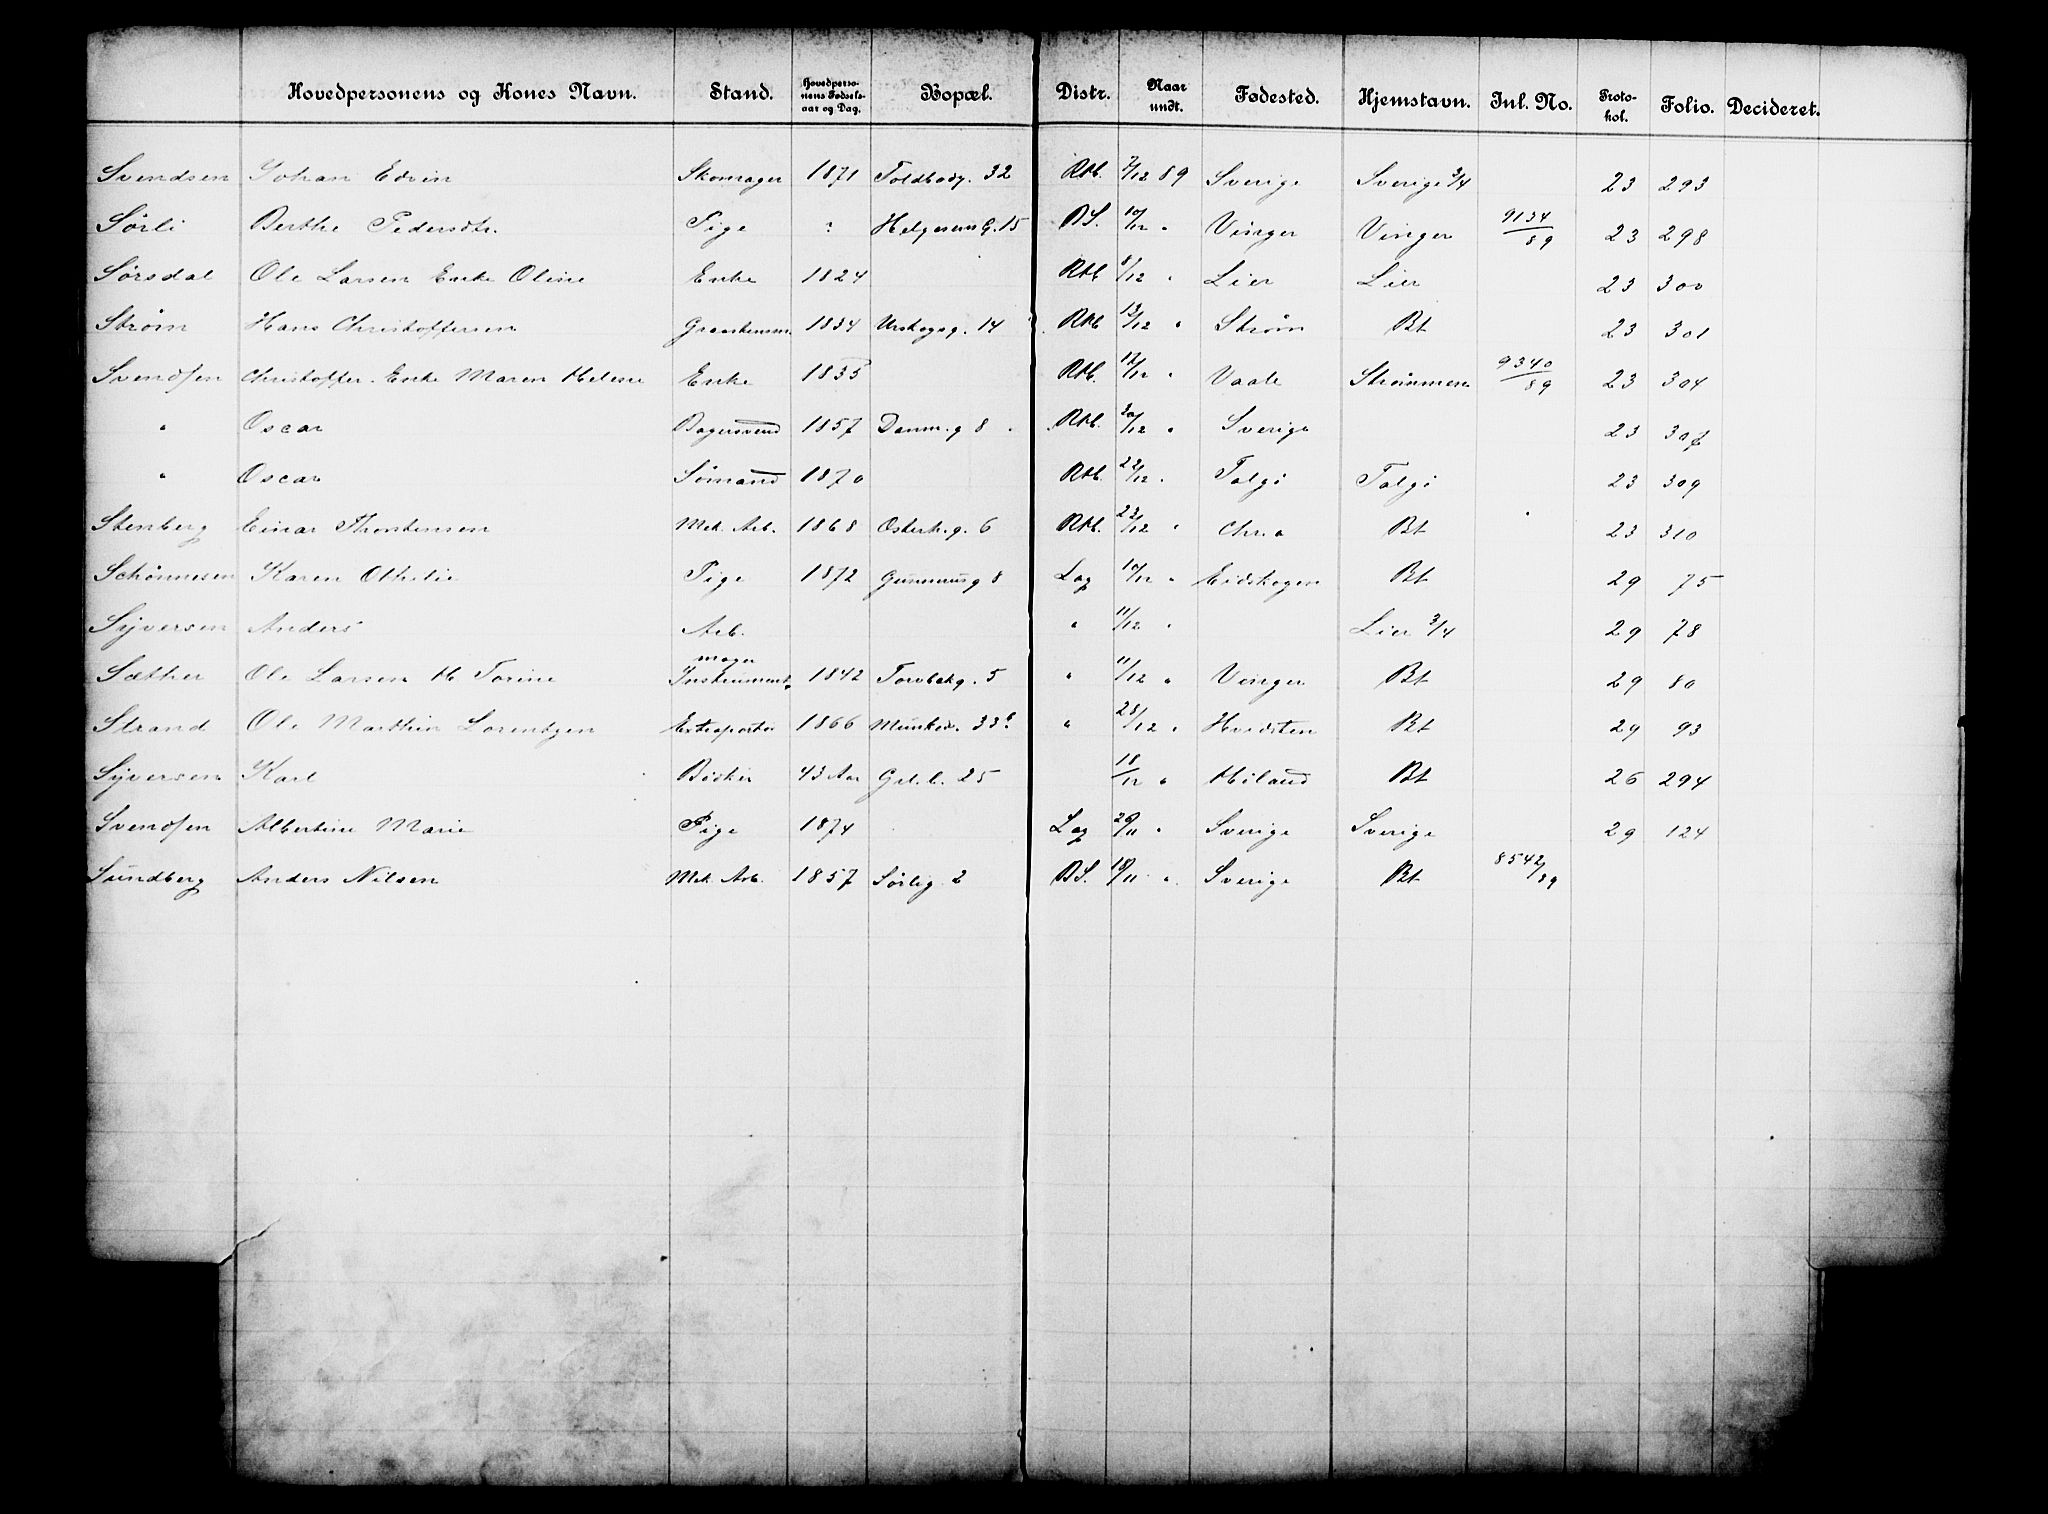 Hovedpersonens og Kones Navn. Stand. Hovedpersonens Fødselsaar og Dag. Bopæl. Distr. Naar undt. Fødested. Hjemstavn. Jnl. No. Protokol. Folio. Decideret.
Svendsen Johan Edvin Skomager 1871 Toldbodg. 32 Rtb. 7/12 89 Sverige Sverige 3/4 23 293
Sørli Berthe Pedersdtr. Pige " Helgesens G. 15 BS. 10/12 " Vinger Vinger 9134/89 23 298
Sørsdal Ole Larsen Enke Oline Enke 1824 Rtb 8/12 " Lier Lier 23 300
Strøm Hans Christoffersen 1834 Urskogsg. 14 Rtb 13/12 " Strøm Bt 23 301
Svendsen Christoffer. Enke Maren Helene Enke 1835 Rtb. 17/12 " Vaale Strømmen 9340/89 23 304
" Oscar Bagersvend 1857 Danm.g 8 Rtb. 20/12 " Sverige 23
" Oscar Sømand 1870 Rtb. 22/12 " Talgø Talgø 23 309
Stenberg Einar Thorstensen Mek. Arb. 1868 Osterh.g. 6 Rtb. 23/12 " Chr.a Bt 23 310
Schønnesen Karen Othilie Pige 1872 g 8 Lag 10/12 " Eidskogen Bt 29 75
Syversen Anders Arb. " 11/12 " Lier 3/4 29 78
Sæther Ole Larsen H Torine Instrumentmager 1842 Torvbakg. 5 " 11/12 " Vinger Bt 29 80
Strand Ole Marthin Lorentzen 1866 Munked. 33 " 28/12 " Hvidsten Bt 29 93
Syversen Karl 43 Aar Grl. l. 25 18/12 " Høland Bt 26 294
Svendsen Albertine Marie Pige 1874 Lag 29/11 " Sverige Sverige 29 124
Sundberg Anders Nilsen Mek. Arb. 1857 Sørlig. 2 BS. 18/11 " Sverige Bt 8542/89